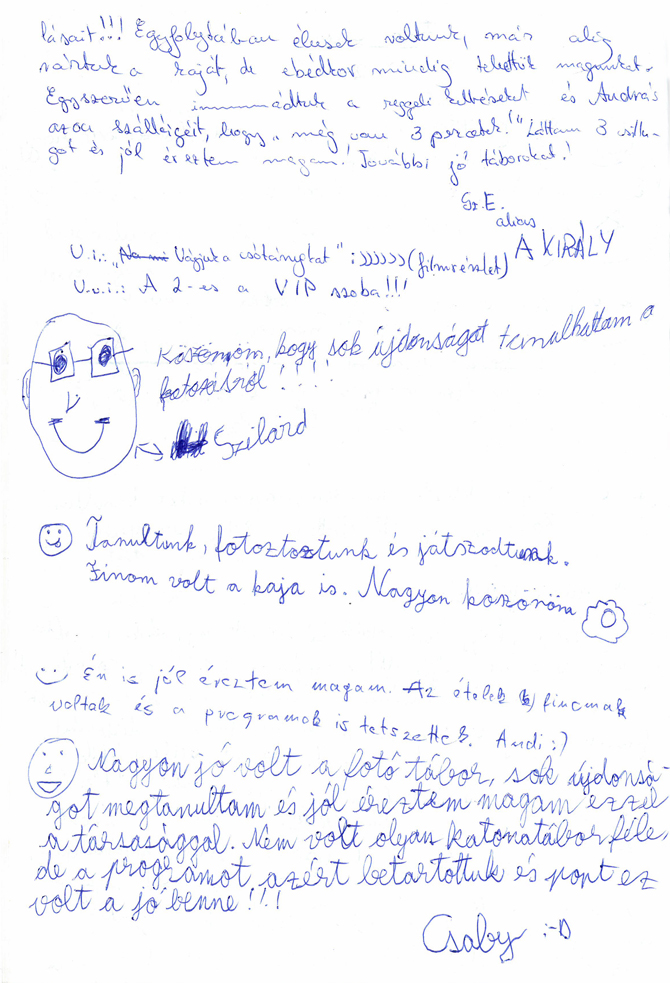 lásait!!! Egyfolytában éhesek voltunk, már alig
vártuk a kaját, de ebédkor mindig tehettük magunkat.
Egyszerűen a reggeli keltéseket és András
azon szállóigéit, hogy „még van 3 percetek!" Láttam 3 csilla-
got és jól éreztem magam! További jó táborokat!
Sz.E.
alias
A KIRÁLY
U.i.: „Vágjuk a csótánytat" ;))))))(filmrészlet)
U.u.i.: A 2-es a VIP szoba!!!
Köszönöm, hogy sok újdonságot tanulhattam a
fotozásról!!!!
Szilárd
Tanultunk, fotoztoztunk és játszodtunk.
Finom volt a kaja is. Nagyon köszönöm
Én is jól éreztem magam. Az ételek finomak
voltak és a programok is tetszettek. Andi :)
Nagyon jó volt a fotó tábor, sok újdonsá-
got megtanultam és jól éreztem magam ezzel
a társasággal. Nem volt olyan katonatábor féle,
de a programot azért betartottuk és pont ez
volt a jó benne!!!
Csaby :-D